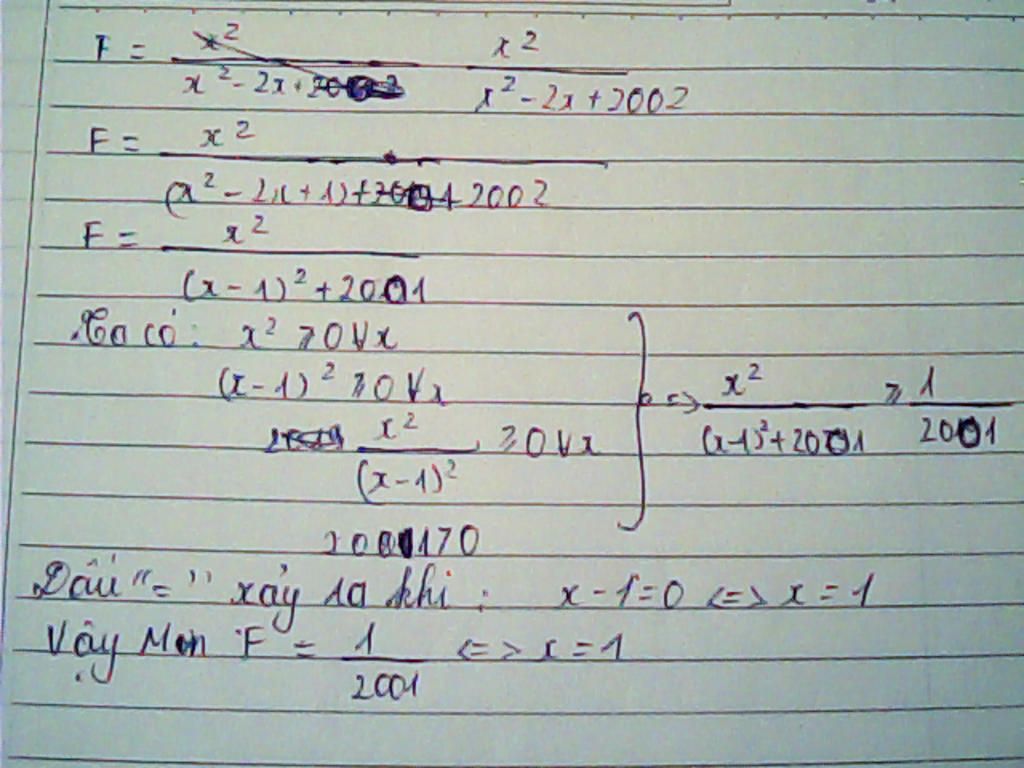 F = x² / (x² - 2x + x² / (x² - 2x + 2002
F = x² / ((x² - 2x + 1) + 2002
F = x² / ((x - 1)² + 2001
Ta có: x² ≥ 0 ∀x
(x - 1)² ≥ 0 ∀x
x² / (x - 1)² ≥ 0 ∀x } => x² / ((x-1)² + 2001 ≥ 1 / 2001
2001 > 0
Dấu "=" xảy ra khi: x - 1 = 0 <=> x = 1
Vậy Min F = 1 / 2001 <=> x = 1